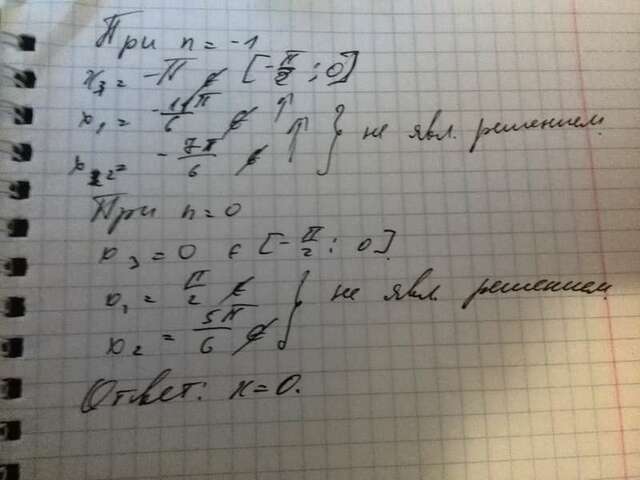 При n = -1
x₃ = -π ∉ [-π/2 ; 0]
x₁ = -11π/6 ∉ ↑
x₂ = -7π/6 ∉ ↑ } не явл. решением
При n = 0
x₃ = 0 ∈ [-π/2 ; 0].
x₁ = π/2 ∉
x₂ = 5π/6 ∉ } не явл. решением
Ответ: x = 0.